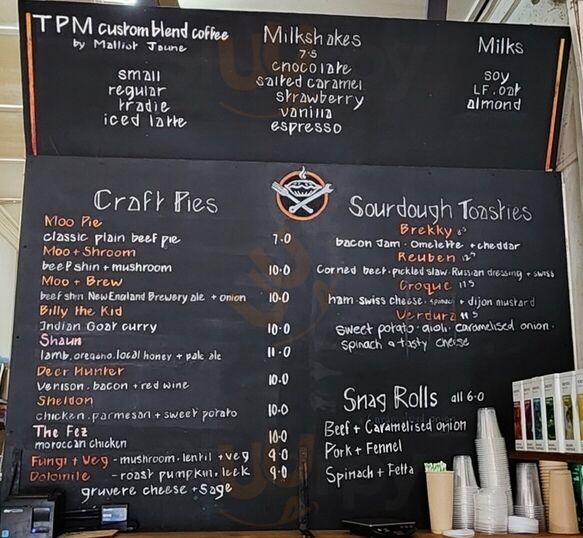 TPM custom blend coffee
by Malliot Jaune
small
regular
tradie
iced latte
Milkshakes
7.5
chocolate
salted caramel
strawberry
vanilla
espresso
Milks
soy
LF. oat
almond
Craft Pies
Moo Pie
classic plain beef pie 7.0
Moo + Shroom
beef shin + mushroom 10.0
Moo + Brew
beef shin New England Brewery ale + onion 10.0
Billy the Kid
Indian Goat curry 10.0
Shaun
lamb, oregano, local honey + pale ale 11.0
Deer Hunter
Venison, bacon + red wine 10.0
Sheldon
chicken, parmesan + sweet potato 10.0
The Fez
moroccan chicken 10.0
Fungi + Veg - mushroom, lentil + veg 9.0
Dolomite - roast pumpkin, leek 9.0
gruyere cheese + Sage
Sourdough Toasties
Brekky
bacon Jam. Omelette + cheddar
Reuben
Corned beef, pickled slaw, Russian dressing + swiss
Croque
ham, swiss cheese, spinach + dijon mustard
Verdura
sweet potato, aioli, caramelised onion,
spinach + tasty cheese
Snag Rolls all 6.0
Beef + Caramelised onion
Pork + Fennel
Spinach + Fetta